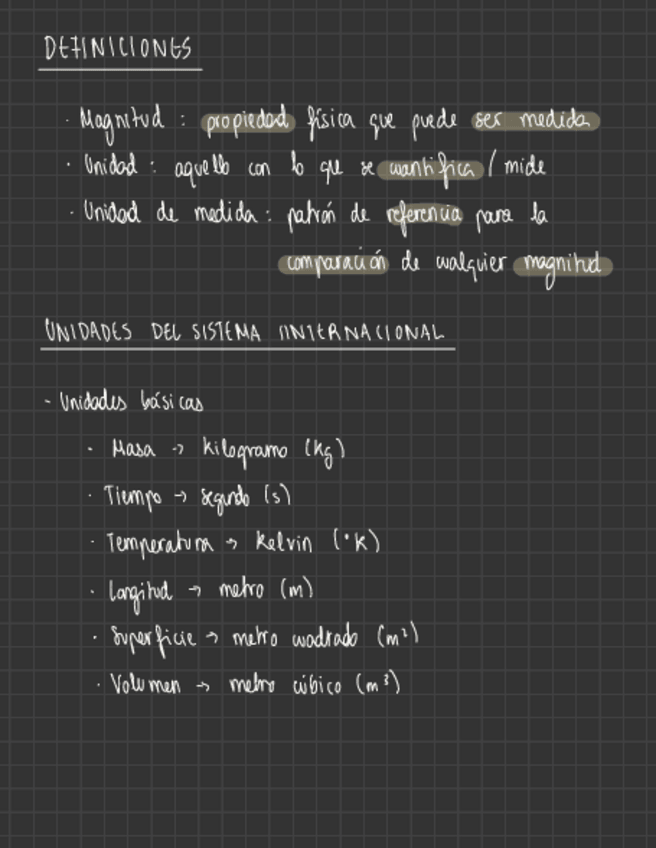 DEFINICIONES
· Magnitud : propiedad física que puede ser medida
· Unidad : aquello con lo que se cuantifica / mide
· Unidad de medida : patrón de referencia para la
comparación de cualquier magnitud
UNIDADES DEL SISTEMA IINTERNACIONAL
- Unidades básicas
· Masa → kilogramo (kg)
· Tiempo → segundo (s)
· Temperatura → Kelvin (°K)
· Longitud → metro (m)
· Superficie → metro cuadrado (m²)
· Volumen → metro cúbico (m³)